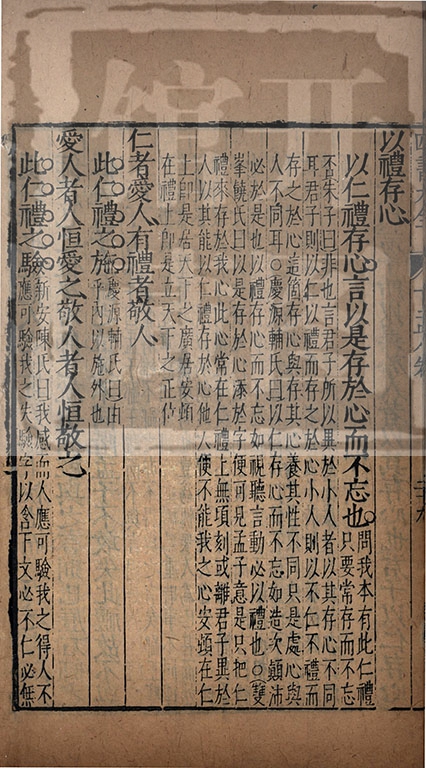 以禮存心
以仁禮存心言以是存於心而不忘也問我本有此仁禮只要常存而不忘
否朱子曰非也言君子所以異於小人者以其存心不同
耳君子則以仁以禮而存之於心小人則以不仁不禮而
存之於心這箇存心與存其心養其性不同只是處心與
人不同耳○慶源輔氏曰以仁存心而不忘如造次顛沛
必於是也以禮存心而不忘如視聽言動必以禮也○雙
峯饒氏曰以是存於心添於字便可見孟子意是只把仁
禮來存於我心此心常在仁禮上無頃刻或離君子異於
人以其能以仁禮存於心他人便不能我之心安頓在仁
上即是居天下之廣居安頓
在禮上即是立天下之正位
仁者愛人有禮者敬人
此仁禮之施慶源輔氏曰由乎內以施外也
愛人者人恒愛之敬人者人恒敬之
此仁禮之驗新安陳氏曰我感而人應可驗我之得人不
應可驗我之失驗字以含下文必不仁必無